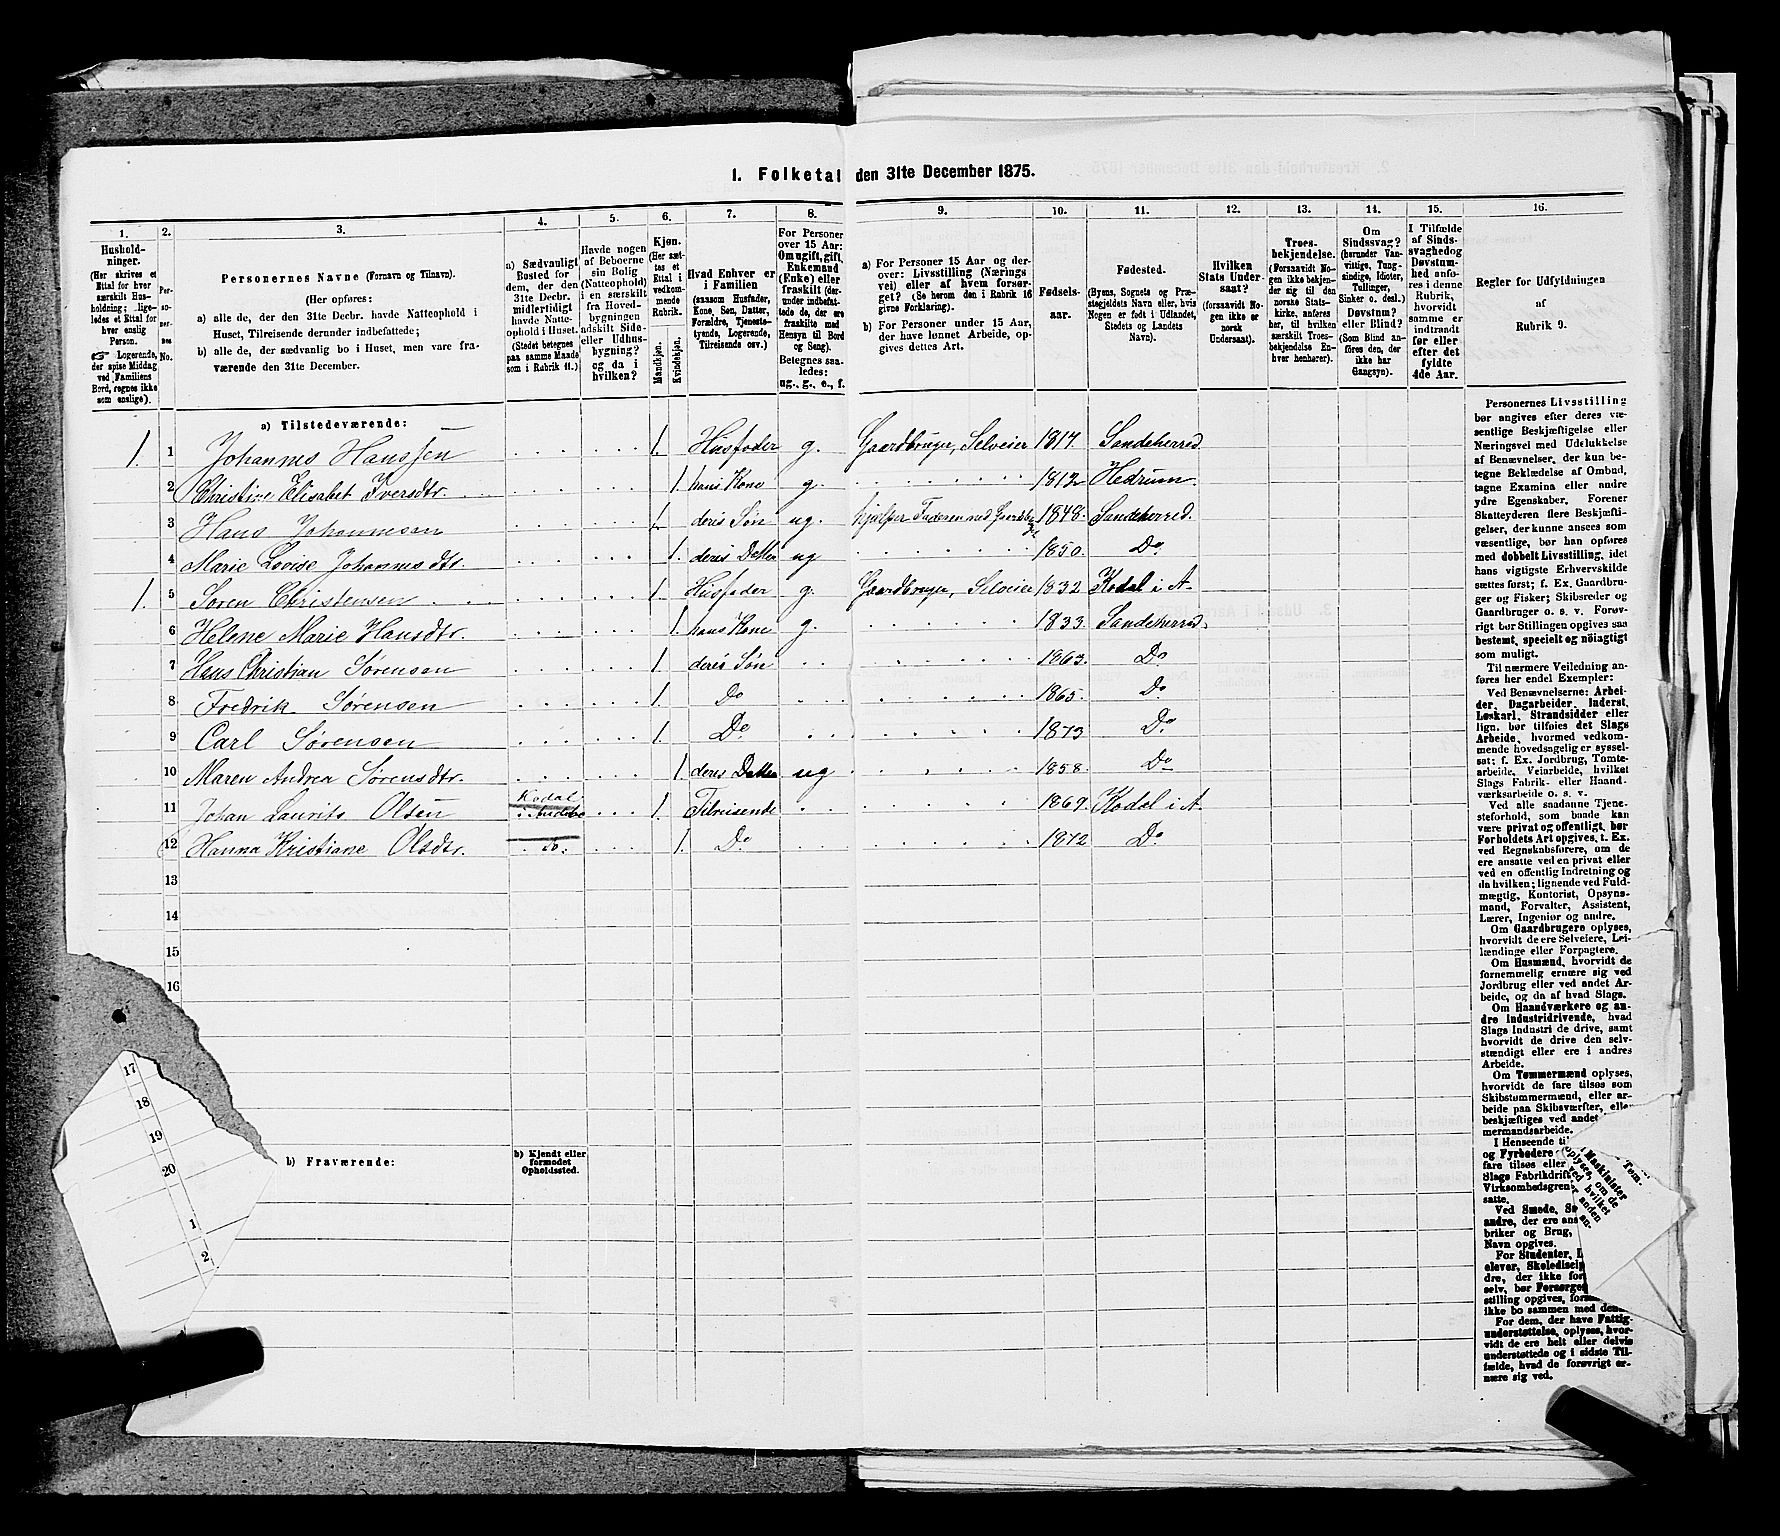 1. Folketal den 31te December 1875.
1. 2. 3. 4. 5. 6. 7. 8. 9. 10. 11. 12. 13. 14. 15. 16.
Hushold-
ninger.
(Her skrives et
Ettal for hver
særskilt Hus-
holdning; lige-
ledes et Ettal for
hver enslig
Person.
☞ Logerende,
der spise Middag
ved Familiens
Bord, regnes ikke
som enslige).
Per-
so-
ner-
nes
No.
Personernes Navne (Fornavn og Tilnavn).
(Her opføres:
a) alle de, der den 31te Decbr. havde Natteophold i
Huset, Tilreisende derunder indbefattede;
b) alle de, der sædvanlig bo i Huset, men vare fra-
værende den 31te December.
a) Sædvanligt
Bosted for
dem, der den
31te Decbr.
midlertidigt
havde Natte-
ophold i Huset.
(Stedet betegnes
paa samme Maade
som i Rubrik 11.)
Havde nogen
af Beboerne
sin Bolig
(Natteophold)
i en særskilt
fra Hoved-
bygningen
adskilt Side-
eller Udhus-
bygning?
og da i
hvilken?
Kjøn.
(Her sæt-
tes et
Ettal i
vedkom-
mende
Rubrik.
Mandkjøn.
Kvindekjøn.
Hvad Enhver er
i Familien
(saasom Husfader,
Kone, Søn, Datter,
Forældre, Tjeneste-
tyende, Logerende,
Tilreisende osv.)
For Personer
over 15 Aar:
Om ugift, gift,
Enkemand
(Enke) eller
fraskilt (der-
under indbefat-
tede de, der ere
fraskilte med
Hensyn til Bord
og Seng).
Betegnes saa-
ledes:
ug., g., e., f.
a) For Personer 15 Aar og der-
over: Livsstilling (Nærings
vei) eller af hvem forsør-
get? (Se herom den i Rubrik 16
givne Forklaring).
b) For Personer under 15 Aar,
der have lønnet Arbeide, op-
gives dettes Art.
Fødsels-
aar.
Fødested.
(Byens, Sognets og Præ-
stegjeldets Navn eller, hvis
Nogen er født i Udlandet,
Stedets og Landets
Navn).
Hvilken
Stats Under-
saat?
(forsaavidt No-
gen ikke er
norsk
Undersaat).
Troes-
bekjendelse.
(Forsaavidt No-
gen ikke bekjen-
der sig til den
norske Stats-
kirke, anføres
her, til hvilken
særskilt Troes-
bekjendelse En-
hver henhører).
Om
Sindssvag?
(herunder Van-
vittige, Tung-
sindige, Idioter,
Sinker o. desl.)
Døvstum?
eller Blind?
(Som Blind an-
føres den, der
ikke har
Gangsyn).
I Tilfælde
af Sinds-
svaghed og
Døvstum-
het anfø-
res i denne
Rubrik,
hvorvidt
samme er
indtraadt
før eller
efter det
fyldte
4de Aar.
Regler for Udfyldningen
af
Rubrik 9.
a) Tilstedeværende:
1. 1 Johannes Hanssen 1. Husfader g. Gaardbruger, Selveier 1817. Sandeherred
2 Christine Elisabet Iversdtr. 1. hans Kone g. 1812 Hedrum.
3 Hans Johannesen 1. deris Søn ug. hjælper Faderen med Gaardbr. 1848. Sandeherred.
4 Marie Lovise Johannesdtr. 1. deris Datter ug 1850. Do
1. 5 Søren Christensen 1. Husfader g. Gaardbruger, Selveier 1832. Kodal i A.
6 Helene Marie Hansdtr. 1. hans Kone g. 1833. Sandeherred.
7 Hans Christian Sørensen 1. deris Søn 1863. Do
8 Fredrik Sørensen 1. Do 1865. Do
9 Carl Sørensen 1. Do 1873 Do
10 Maren Andrea Sørensdtr. 1. deris Datter ug 1858. Do
11 Johan Laurits Olsen Kodal i Andebo 1. Tilreisende 1869. Kodal i A.
12 Hanna Kristiane Olsdtr. do. 1. Do 1872 Do
13
14
15
16
17
18
19
20
b) Fraværende:
b) Kjendt eller
formodet
Opholdssted.
1
2
Personernes Livsstilling
bør angives efter deres væ-
sentlige Beskjæftigelse eller
Næringsvei med Udelukkelse
af Benævnelser, der kun be-
tegne Beklædelse af Ombud,
tagne Examina eller andre
ydre Egenskaber. Forener
Skatteyderen flere Beskjæfti-
gelser, der kunne ansees som
væsentlige, bør han opføres
med dobbelt Livsstilling, idet
hans vigtigste Erhvervskilde
sættes først; f. Ex. Gaardbru-
ger og Fisker; Skibsreder og
Gaardbruger o. s. v. Forøv-
rigt bør Stillingen opgives saa
bestemt, specielt og nøiagtigt
som muligt.
Til nærmere Veiledning an-
føres her endel Exempler:
Ved Benævnelserne: Arbei-
der, Dagarbeider, Inderst,
Løskarl, Strandsidder eller
lign. bør tilføies det Slags
Arbeide, hvormed vedkom-
mende hovedsagelig er syssel-
sat; f. Ex. Jordbrug, Tomte-
arbeide, Veiarbeide, hvilket
Slags Fabrik- eller Haand-
værksarbeide o. s. v.
Ved alle saadanne Tjene-
steforhold, som baade kan
være privat og offentligt, bør
Forholdets Art opgives, t. Ex.
ved Regnskabsførere, om de
ere ansatte ved en privat eller
ved en offentlig Indretning og
da hvilken; lignende ved Fuld-
mægtig, Kontorist, Opsyns-
mand, Forvalter, Assistent,
Lærer, Ingeniør og andre.
Om Gaardbrugere oplyses,
hvorvidt de ere Selveiere, Lei-
lændinge eller Forpagtere.
Om Husmænd, hvorvidt de
fornemmelig ernære sig ved
Jordbrug eller ved andet Ar-
beide, og da af hvad Slags.
Om Haandværkere og an-
dre Industridrivende, hvad
Slags Industri de drive, samt
hvorvidt de drive den selv-
stændigt eller ere i andres
Arbeide.
Om Tømmermænd oplyses,
hvorvidt de fare tilsøs som
Skibstømmermænd, eller ar-
beide paa Skibsværfter, eller
beskjæftiges ved andet
mermandsarbeide.
I Henseende ti
og Fyrbødere
fare tilsøs eller
Slags Fabrikdrift
Virksomhedsgren
satte.
Ved Smede, S
andre, der ere ans
briker og Brug,
Navn opgives.
For Studenter, L
elever, Skoledisciple
dre, der ikke for
selv, bør Forsørger
stilling opgives, fors
ikke bo sammen med denne
For dem, der have Fattig-
understøttelse, oplyses, hvor-
vidt de ere helt eller delvis
understøttede og i sidste Til-
fælde, hvad de forøvrigt er-
nære sig ved.
Tøm-
Maskinister
oplyses, om de
ved hvilket
anden
an-